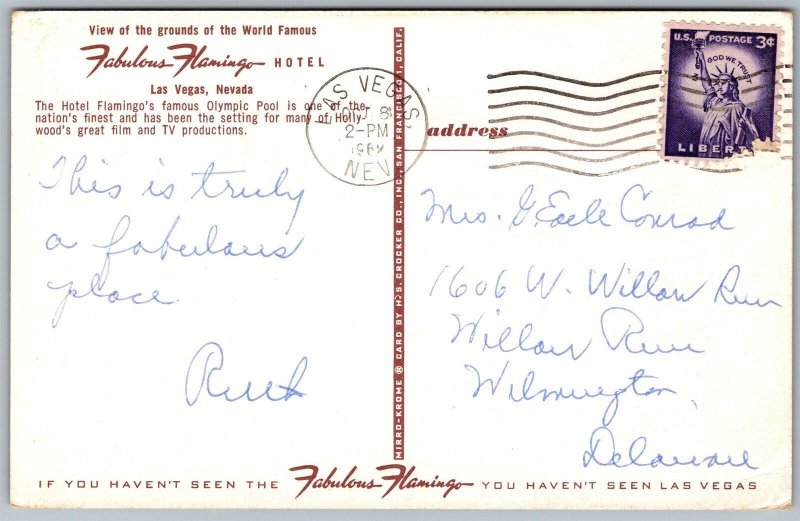 View of the grounds of the World Famous
Fabulous Flamingo HOTEL
Las Vegas, Nevada
The Hotel Flamingo's famous Olympic Pool is one of the
nation's finest and has been the setting for many of Holly-
wood's great film and TV productions.
This is truly
a fabulous
place.
Ruth
IF YOU HAVEN'T SEEN THE Fabulous Flamingo YOU HAVEN'T SEEN LAS VEGAS
MIRRO-KROME ® CARD BY H.S. CROCKER CO., INC., SAN FRANCISCO 1, CALIF.
LAS VEGAS,
8
2-PM
NEV
address
U.S. POSTAGE 3¢
IN GOD WE TRUST
LIBERT
Mrs. G. Earle Conrad
1606 W. Willow Run
Willow Run
Wilmington
Delaware